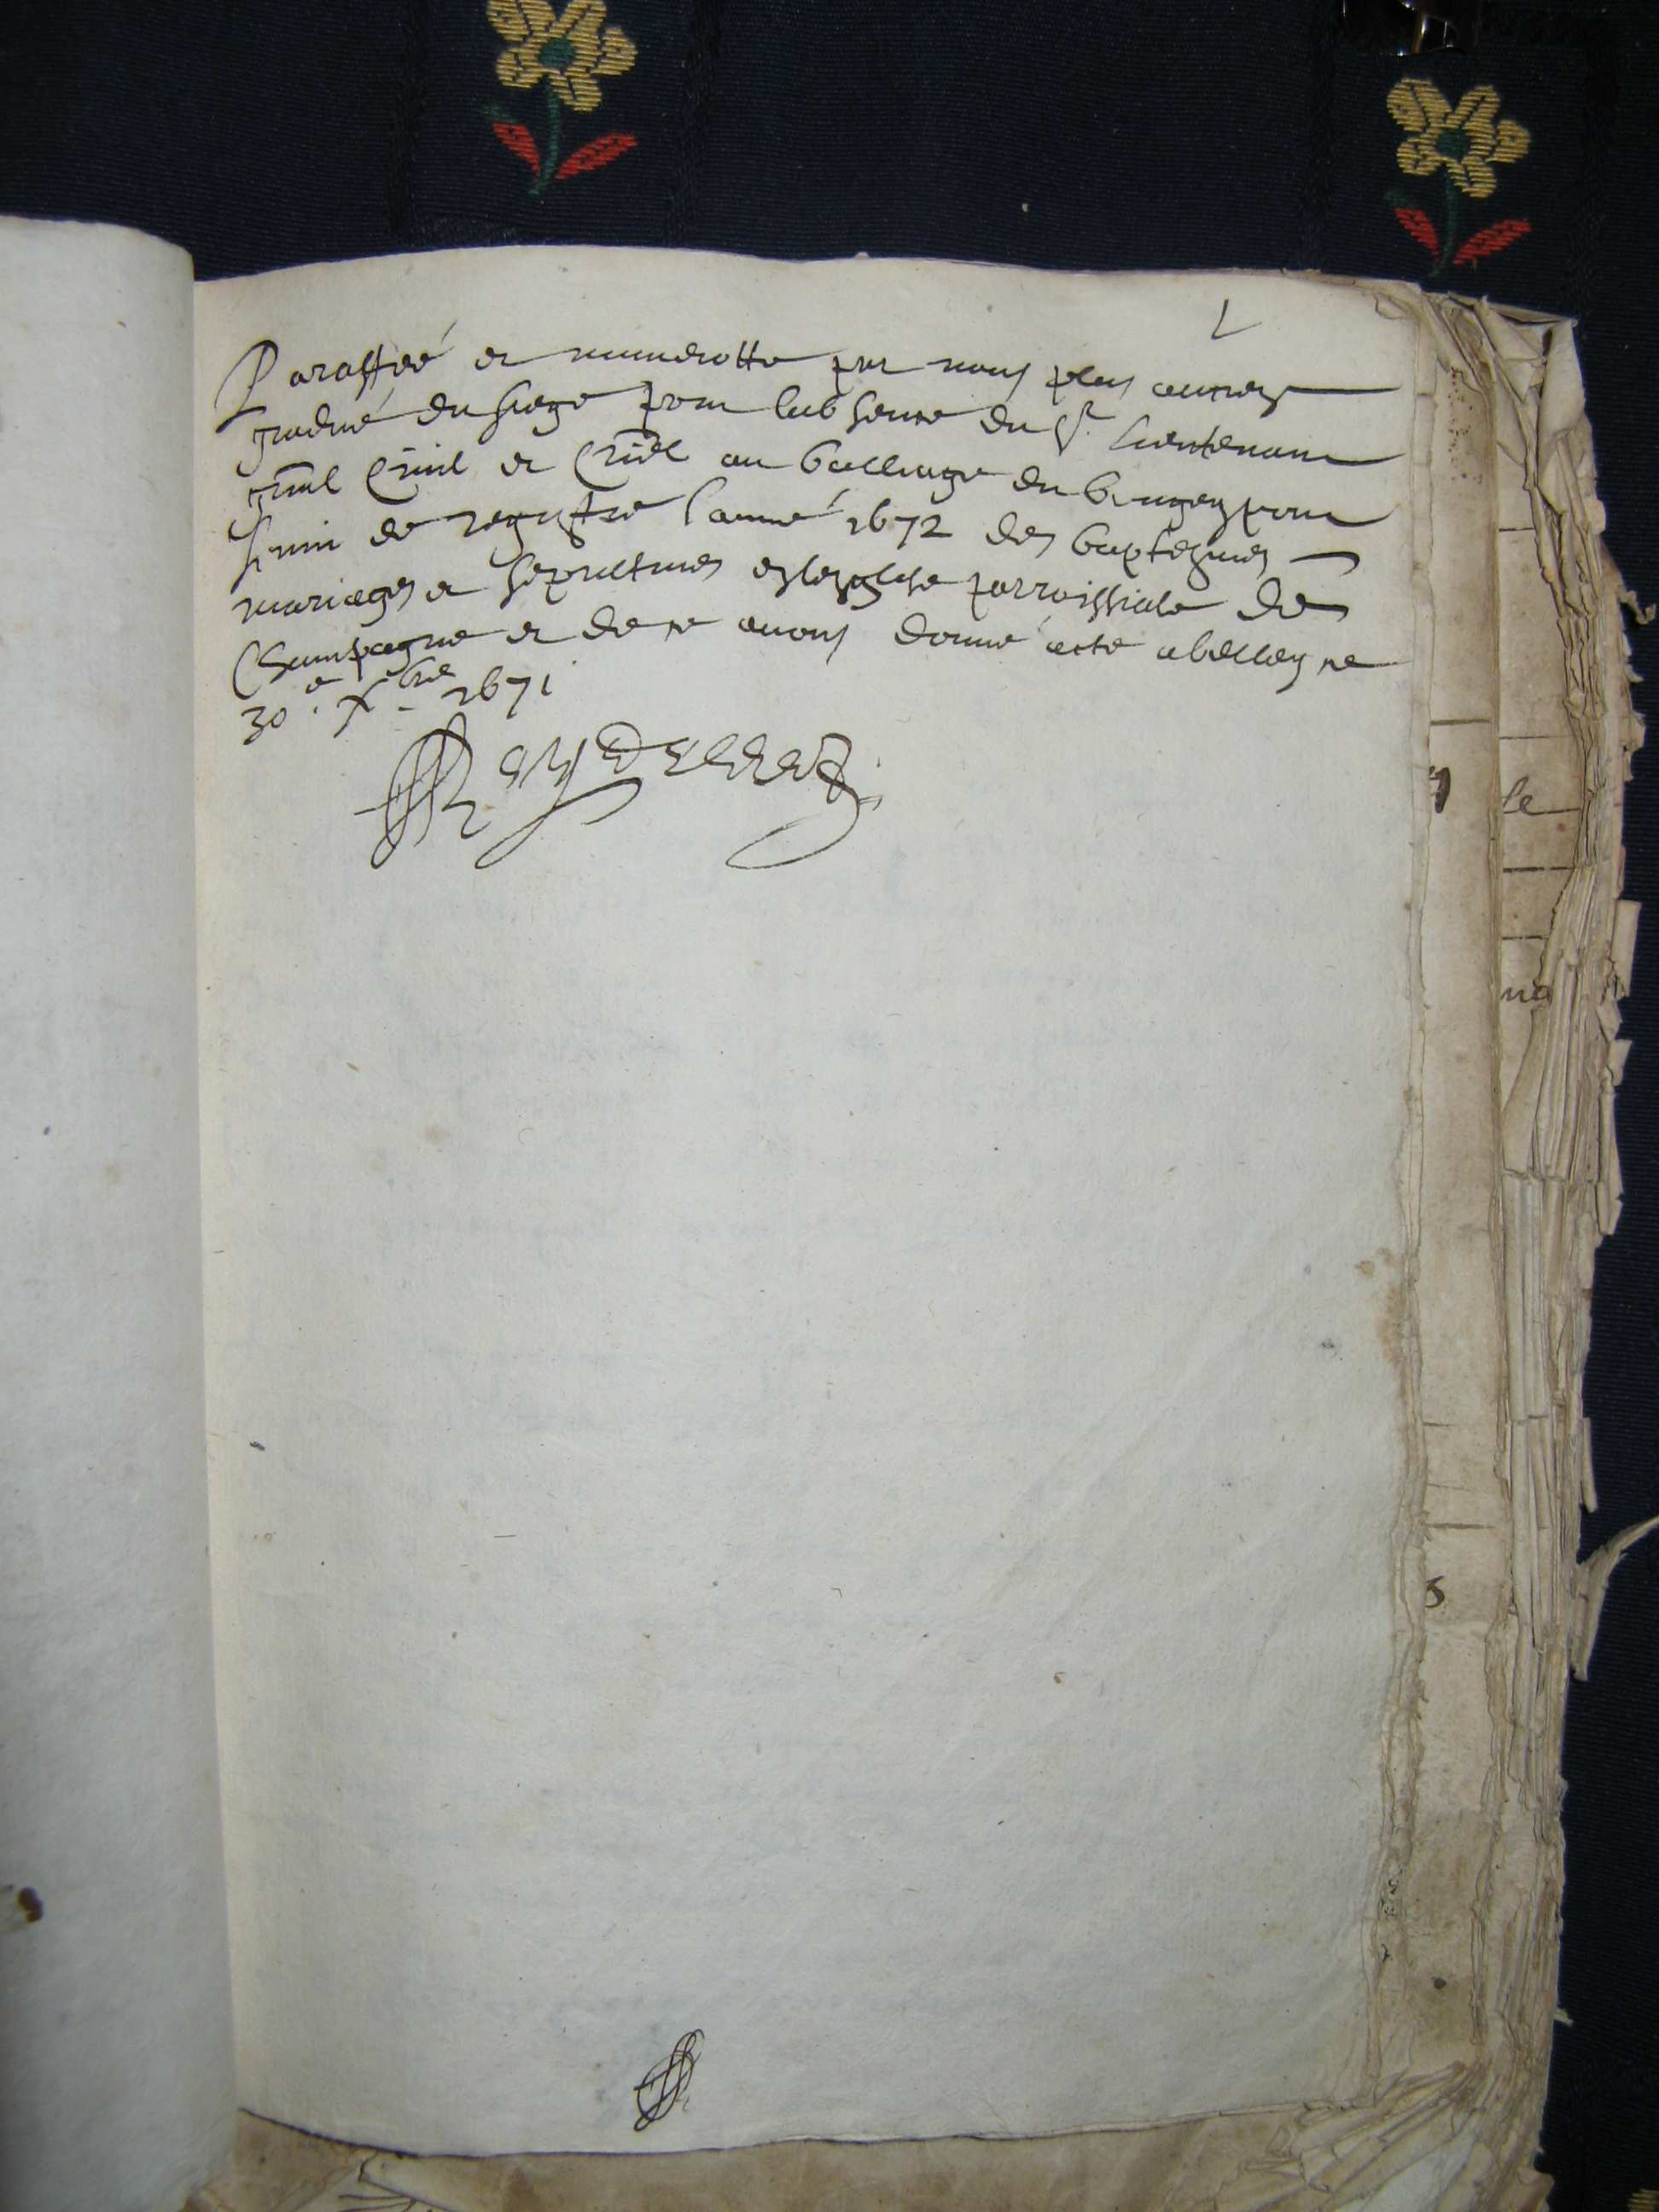 Paraffeé et numerotte par nous plus antien
gradué du siege pour labsence du Sr. Lieutenant
gnal Ciuil et Criel au balliage du bugey pour
seruir de registre lanneé 1672 des baptesmes
mariages et sepultures esleglise parroissiale de
Champagne et de ce auons donné acte abelley ce
30e. Xbre 1671